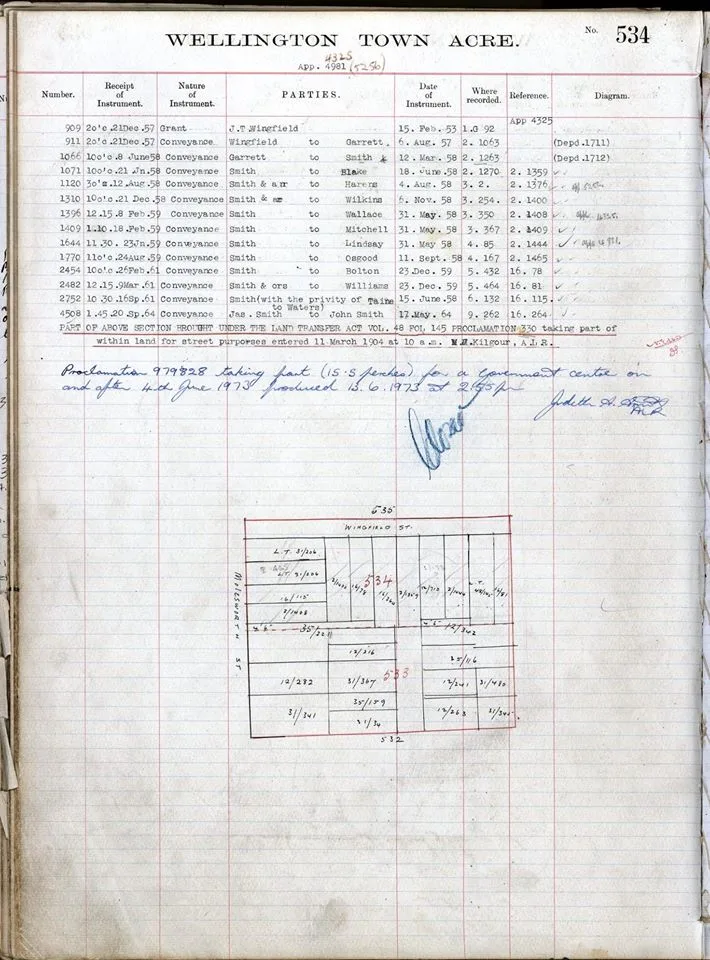 No. 534
WELLINGTON TOWN ACRE.
4325
APP. 4981 (5256)
Number. Receipt of Instrument. Nature of Instrument. PARTIES. Date of Instrument. Where recorded. Reference. Diagram.
APP 4325
909 2o'c.21Dec.57 Grant J.T.Wingfield 15. Feb. 53 1.G 92
911 2o'c.21Dec.57 Conveyance Wingfield to Garrett. 6. Aug. 57 2. 1063 (Depd.1711)
1066 10o'c.8 June58 Conveyance Garrett to Smith 12. Mar. 58 2. 1263 (Depd.1712)
1071 10o'c.21 Jn.58 Conveyance Smith to Blake 18. June.58 2. 1270 2. 1359
1120 3o's.12.Aug.58 Conveyance Smith & anr to Harens 4. Aug. 58 3. 2. 2. 1376
1310 10o'c.21 Dec.58 Conveyance Smith & ar to Wilkins 6. Nov. 58 3. 254. 2. 1400
1396 12.15.8 Feb.59 Conveyance Smith to Wallace 31. May. 58 3. 350 2. 1408
1409 1.10.18.Feb.59 Conveyance Smith to Mitchell 31. May. 58 3. 367 2. 1409
1644 11.30. 23Jn.59 Conveyance Smith to Lindsay 31. May 58 4. 85 2. 1444
1770 11o'c.24Aug.59 Conveyance Smith to Osgood 11. Sept. 58 4. 167 2. 1465
2454 10o'c.26Feb.61 Conveyance Smith to Bolton 23. Dec. 59 5. 432 16. 78
2482 12.15.9Mar.61 Conveyance Smith & ors to Williams 23. Dec. 59 5. 464 16. 81
2752 10.30.16Sp.61 Conveyance Smith(with the privity of Taine to Waters) 15. June 58 6. 132 16. 115.
4508 1.45.20 Sp.64 Conveyance Jas. Smith to John Smith 17.May. 64 9. 262 16. 264
PART OF ABOVE SECTION BROUGHT UNDER THE LAND TRANSFER ACT VOL. 48 FOL 145 PROCLAMATION 330 taking part of
within land for street purposes entered 11 March 1904 at 10 a.m. Kilgour, A.L.R.
Proclamation 979828 taking part (15.5 perches) for a Government centre on
and after 4th June 1973 produced 13.6.1973 at 2.55pm
Judith A.
ALR
535
WINGFIELD ST.
L.T. 31/206
L.T. 31/206
16/115
2/1408
534
MOLESWORTH ST
35/221
12/342
12/216
35/116
12/282
31/367
533
12/241
31/480
35/159
31/341
31/34
12/263
532